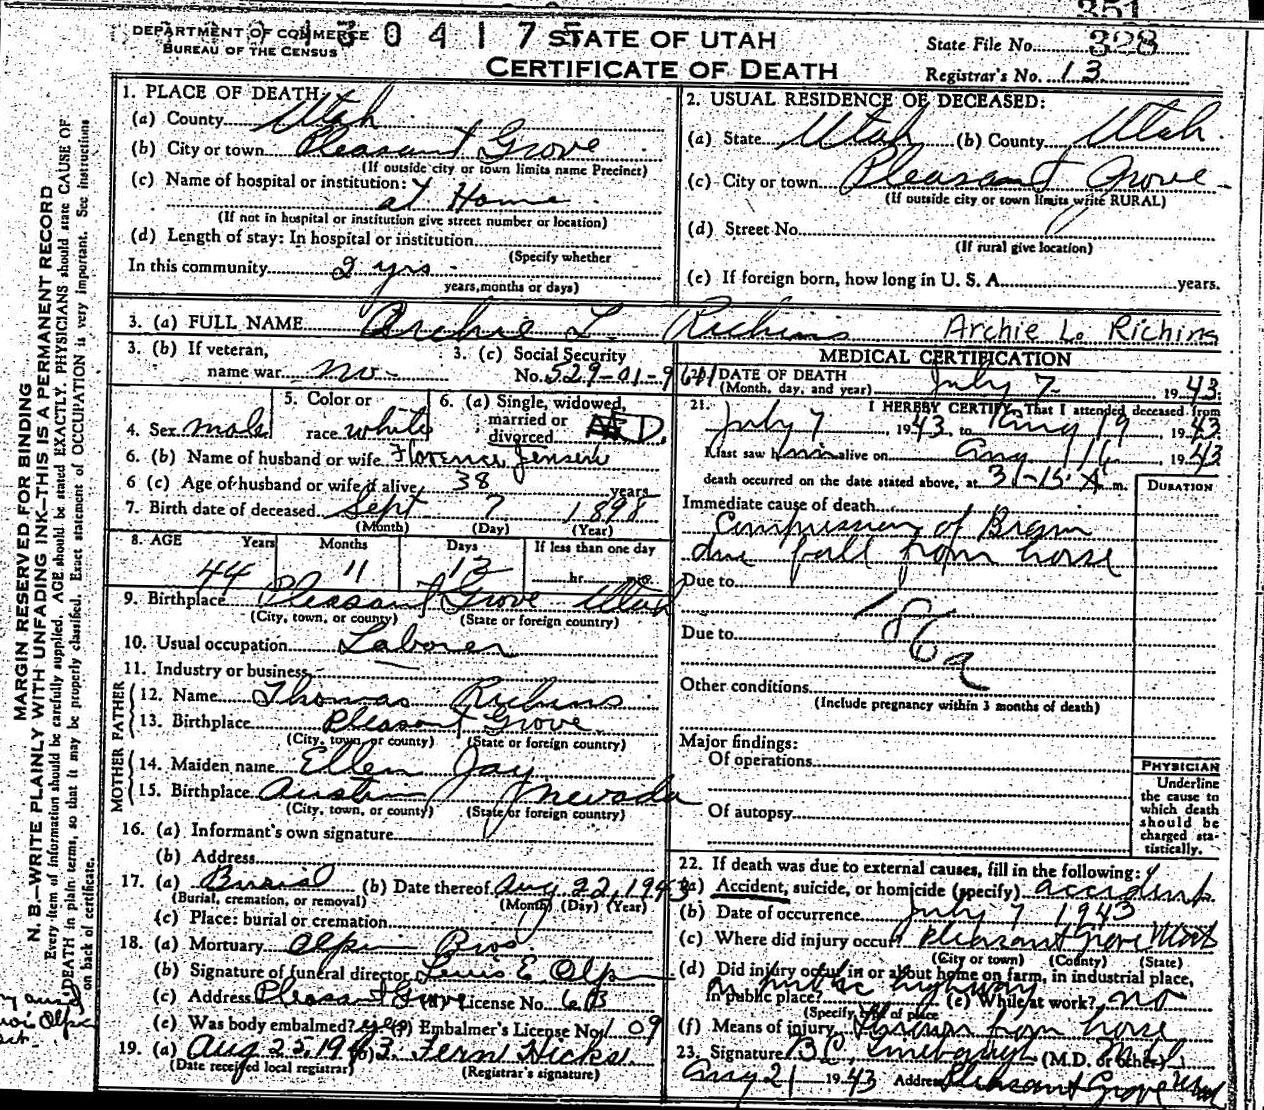 351
DEPARTMENT OF COMMERCE
BUREAU OF THE CENSUS
304175
STATE OF UTAH
CERTIFICATE OF DEATH
State File No. 328
Registrar's No. 13
MARGIN RESERVED FOR BINDING
N. B.—WRITE PLAINLY WITH UNFADING INK—THIS IS A PERMANENT RECORD
Every item of information should be carefully supplied. AGE should be stated EXACTLY. PHYSICIANS should state CAUSE OF
DEATH in plain terms, so that it may be properly classified. Exact statement of OCCUPATION is very important. See instructions
on back of certificate.
1. PLACE OF DEATH:
(a) County Utah
(b) City or town Pleasant Grove
(If outside city or town limits name Precinct)
(c) Name of hospital or institution:
at Home
(If not in hospital or institution give street number or location)
(d) Length of stay: In hospital or institution
(Specify whether
In this community 2 yrs.
years, months or days)
2. USUAL RESIDENCE OF DECEASED:
(a) State Utah (b) County Utah
(c) City or town Pleasant Grove
(If outside city or town limits write RURAL)
(d) Street No.
(If rural give location)
(e) If foreign born, how long in U. S. A. years.
3. (a) FULL NAME Archie L. Richins Archie L. Richins
3. (b) If veteran, name war no
3. (c) Social Security No. 529-01-9
4. Sex male
5. Color or race white
6. (a) Single, widowed, married or divorced D.
6. (b) Name of husband or wife Florence Jensen
6 (c) Age of husband or wife if alive 38 years
7. Birth date of deceased Sept 7 1898
(Month) (Day) (Year)
8. AGE Years Months Days If less than one day
44 11 12 hr. min.
9. Birthplace Pleasant Grove Utah
(City, town, or county) (State or foreign country)
10. Usual occupation Laborer
11. Industry or business
FATHER
12. Name Thomas Richins
13. Birthplace Pleasant Grove
(City, town or county) (State or foreign country)
MOTHER
14. Maiden name Ellen Jay
15. Birthplace Austin Nevada
(City, town, or county) (State or foreign country)
16. (a) Informant's own signature
(b) Address
17. (a) Burial (b) Date thereof Aug 22, 1943
(Burial, cremation, or removal) (Month) (Day) (Year)
(c) Place: burial or cremation
18. (a) Mortuary Olpin Bros.
(b) Signature of funeral director Lewis E Olpin
(c) Address Pleasant Grove License No. 6
(e) Was body embalmed? yes Embalmer's License No. 109
19. (a) Aug 25, 1943 (b) Fern Hicks
(Date received local registrar) (Registrar's signature)
MEDICAL CERTIFICATION
20. DATE OF DEATH
(Month, day, and year) July 7 1943
21. I HEREBY CERTIFY, That I attended deceased from
July 7, 1943, to Aug 19, 1943
I last saw him alive on Aug 1943
death occurred on the date stated above, at 3:15 A. m.
DURATION
Immediate cause of death
Compression of Brain
due fall from horse
Due to
186a
Due to
Other conditions
(Include pregnancy within 3 months of death)
Major findings:
Of operations
Of autopsy
PHYSICIAN
Underline
the cause to
which death
should be
charged sta-
tistically.
22. If death was due to external causes, fill in the following:
(a) Accident, suicide, or homicide (specify) accident
(b) Date of occurrence July 7 1943
(c) Where did injury occur? Pleasant Grove Utah
(City or town) (County) (State)
(d) Did injury occur in or about home on farm, in industrial place,
in public place? on public highway (e) While at work? no
(Specify type of place
(f) Means of injury Thrown from horse
23. Signature (M.D. or other) M.D.
Aug 21 1943 Address Pleasant Grove Utah